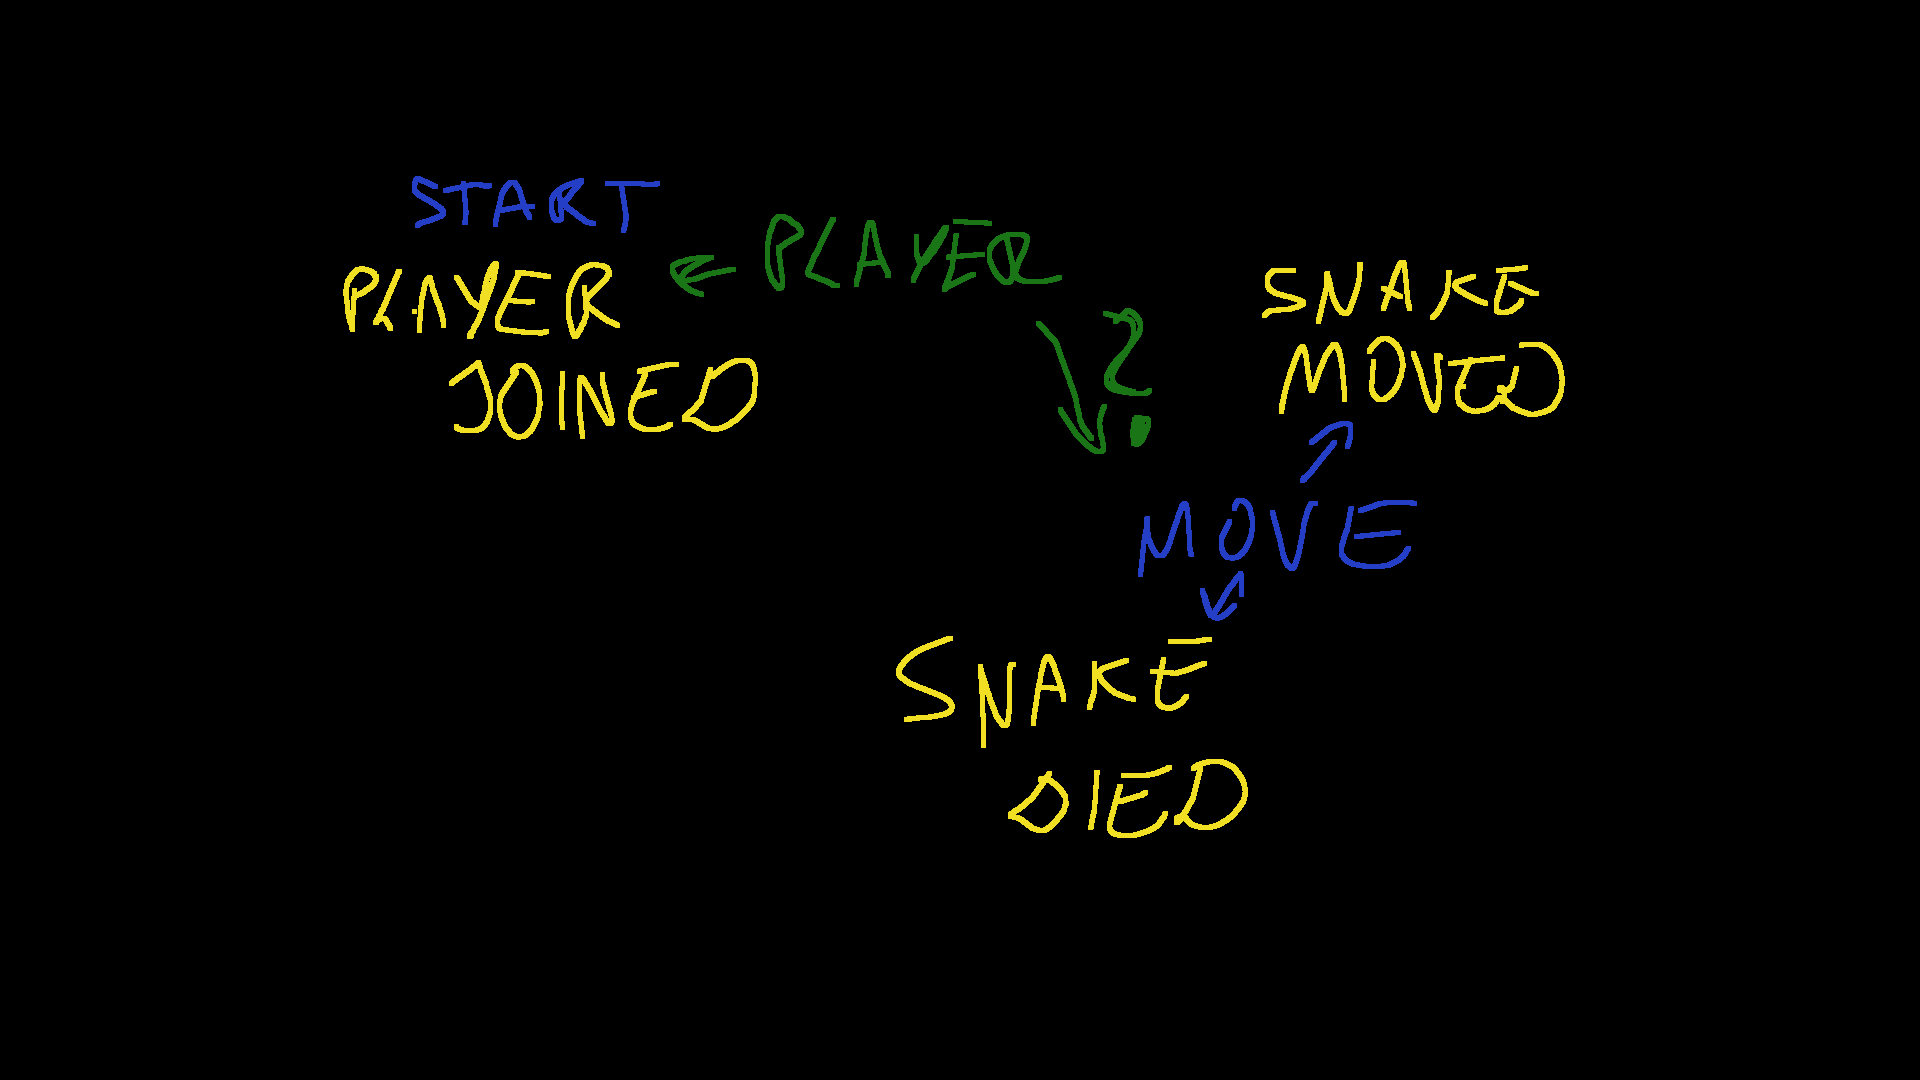 START
PLAYER
JOINED
PLAYER
?
SNAKE
MOVED
MOVE
SNAKE
DIED